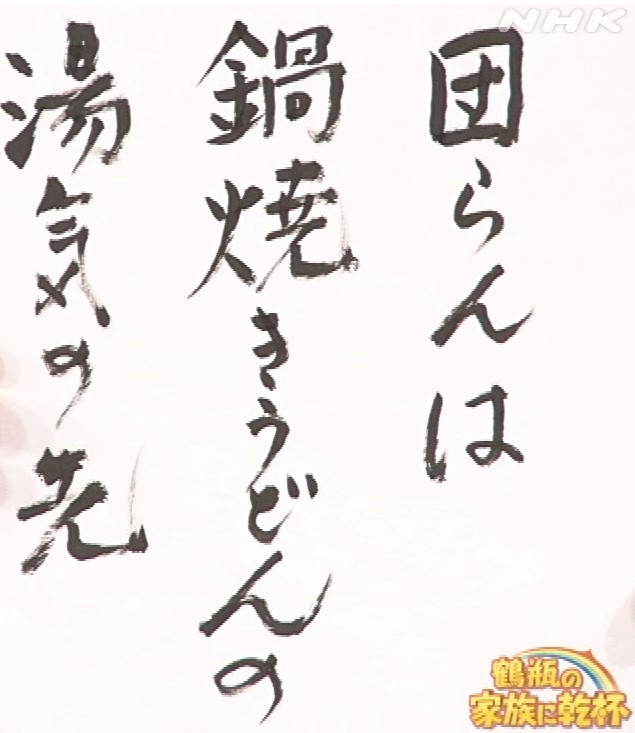 NHK
団らんは
鍋焼きうどんの
湯気の先
鶴瓶の
家族に乾杯